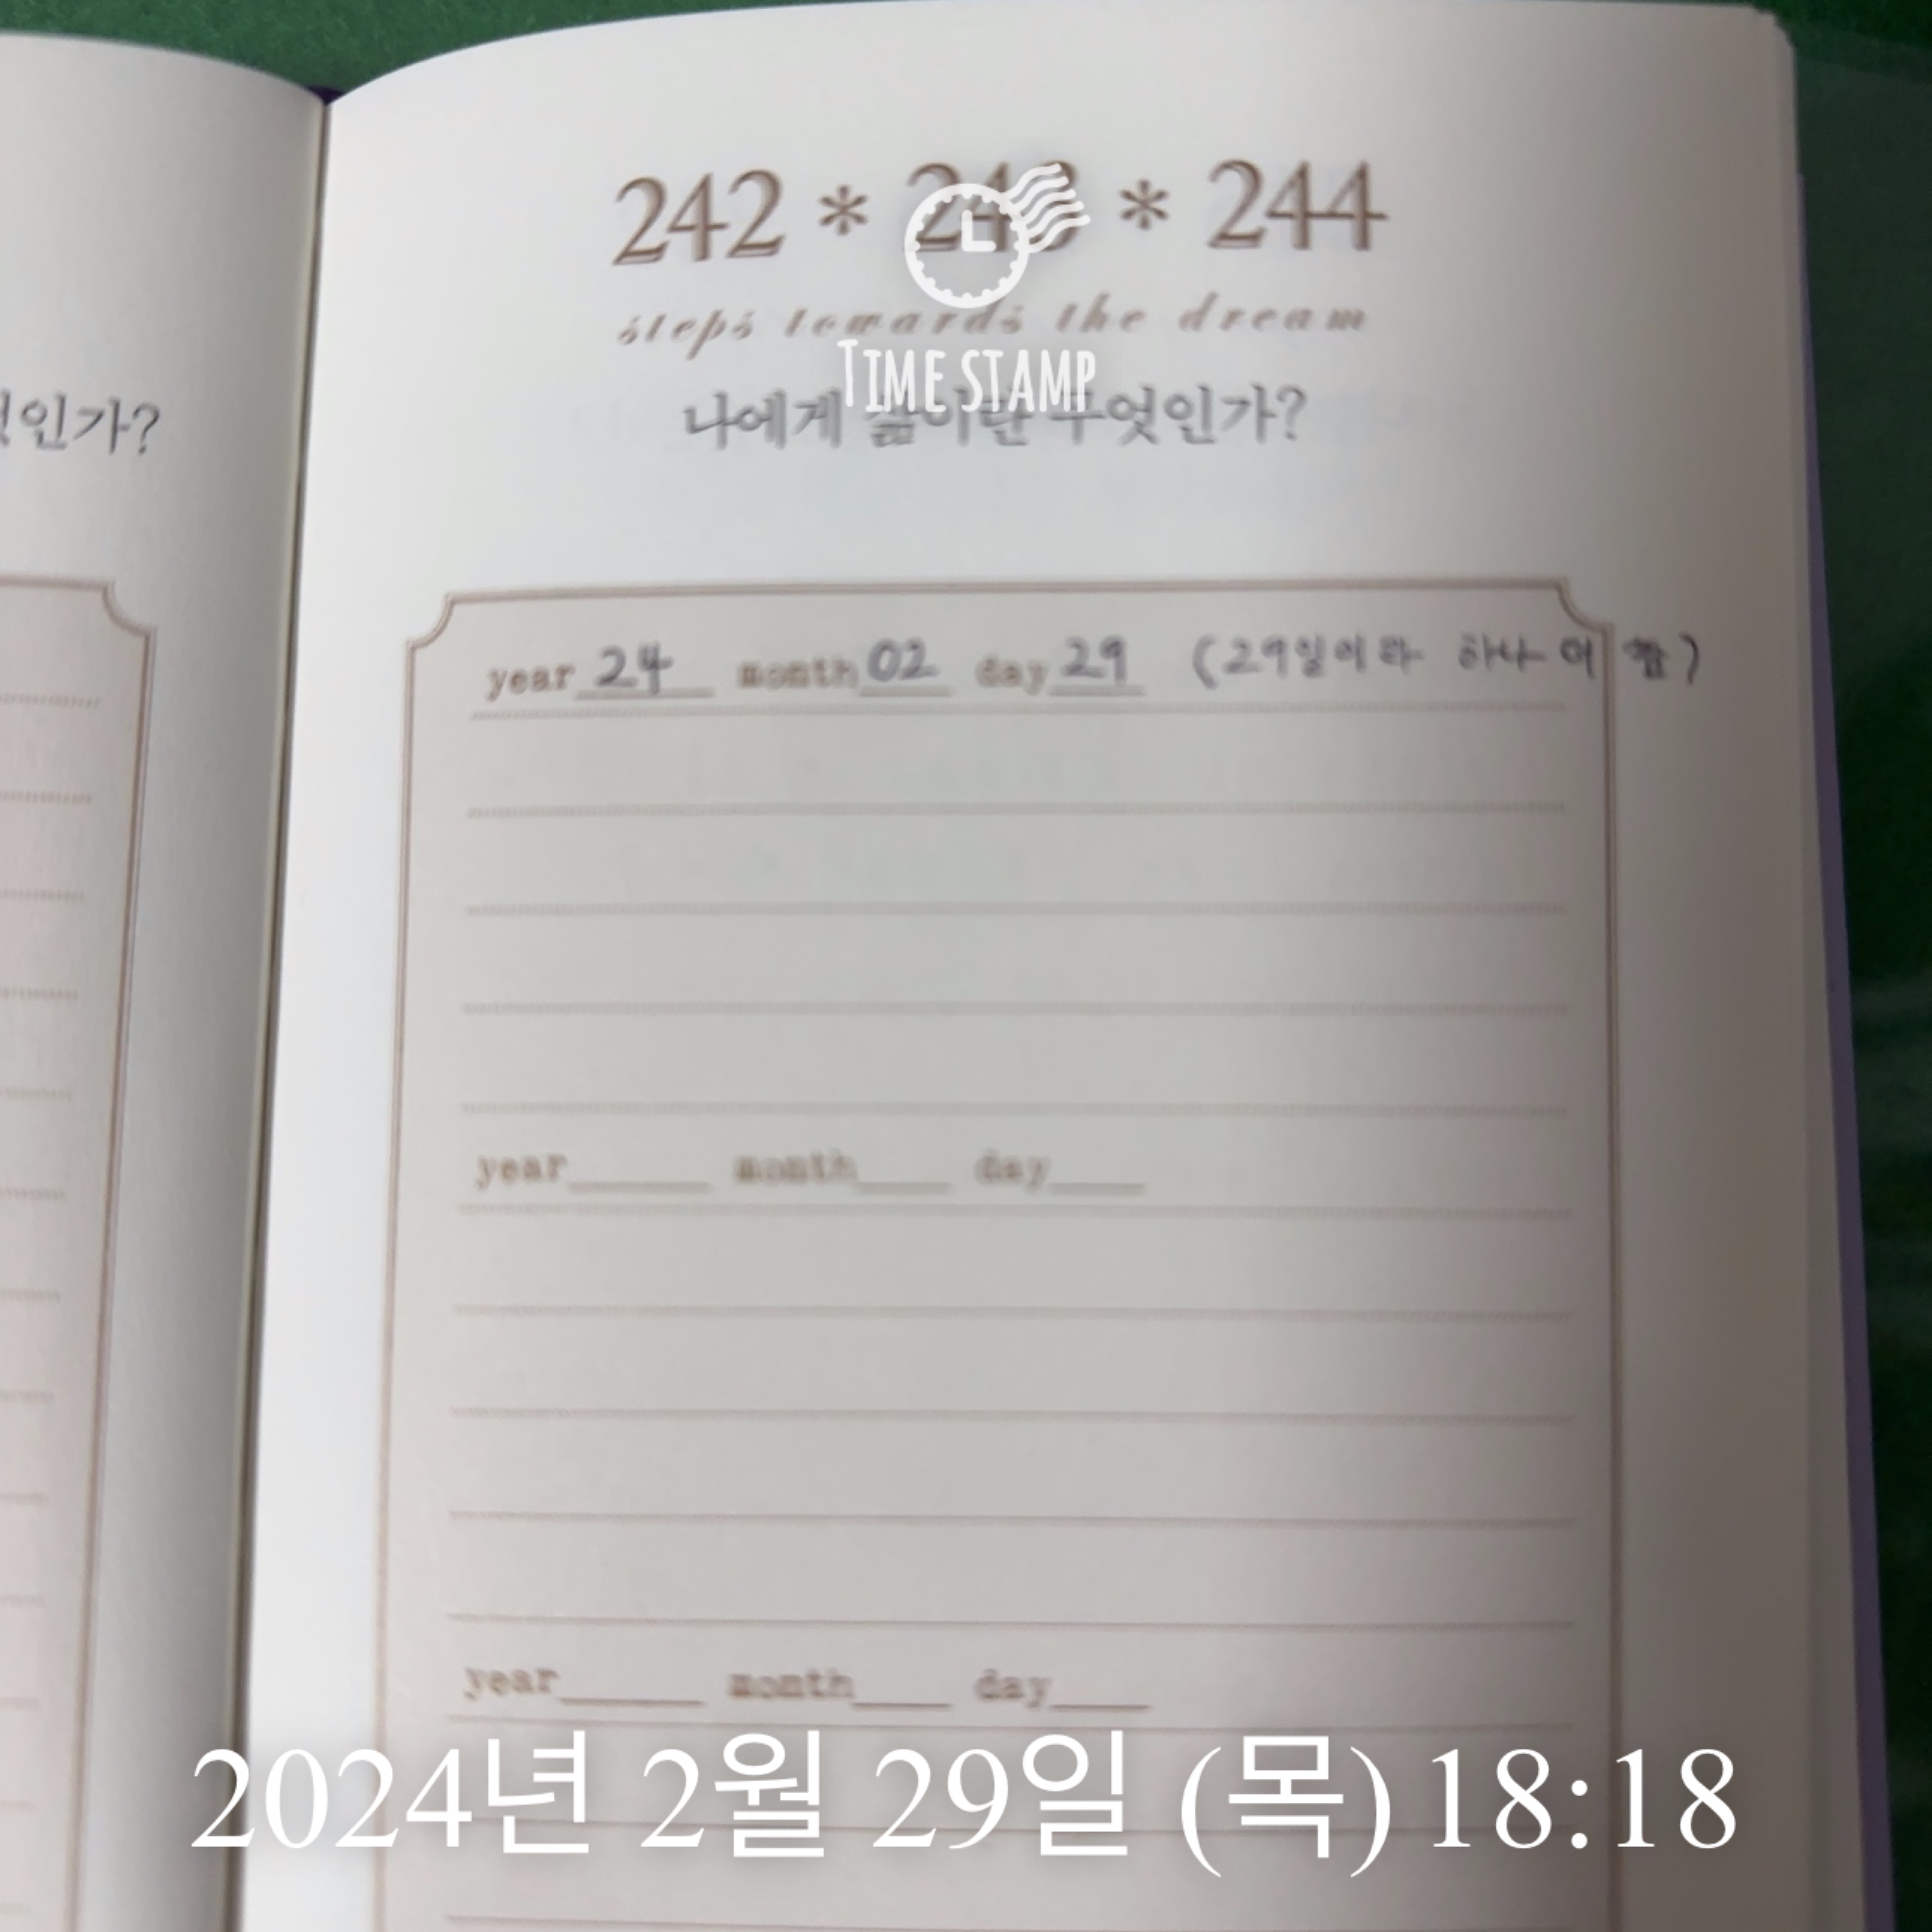 242 * 243 * 244
steps towards the dream
TIME STAMP
엇인가?
나에게 삶이란 무엇인가?
year 24 month 02 day 29 (29일이라 하나 더 씀)
year month day
year month day
2024년 2월 29일 (목) 18:18